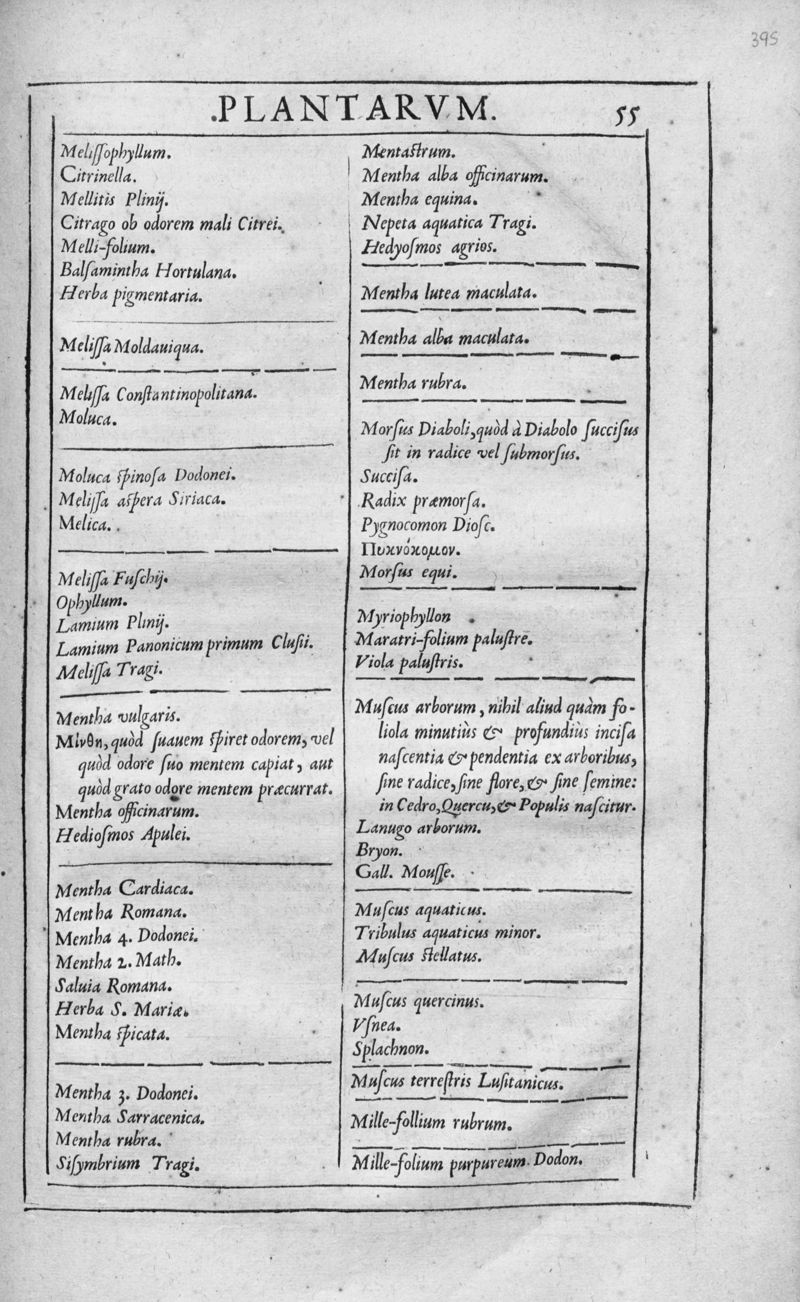 395
.PLANTARVM.
55
Meliſſophyllum.
Citrinella.
Mellitis Plinij.
Citrago ob odorem mali Citrei.
Melli-folium.
Balſamintha Hortulana.
Herba pigmentaria.
Meliſſa Moldauiqua.
Meliſſa Conſtantinopolitana.
Moluca.
Moluca ſpinoſa Dodonei.
Meliſſa aſpera Siriaca.
Melica.
Meliſſa Fuſchij.
Ophyllum.
Lamium Plinij.
Lamium Panonicum primum Cluſii.
Meliſſa Tragi.
Mentha vulgaris.
Μίνθη, quòd ſuauem ſpiret odorem, vel
quòd odore ſuo mentem capiat, aut
quòd grato odore mentem præcurrat.
Mentha officinarum.
Hedioſmos Apulei.
Mentha Cardiaca.
Mentha Romana.
Mentha 4. Dodonei.
Mentha 2. Math.
Saluia Romana.
Herba S. Mariæ.
Mentha ſpicata.
Mentha 3. Dodonei.
Mentha Sarracenica.
Mentha rubra.
Siſymbrium Tragi.
Mentaſtrum.
Mentha alba officinarum.
Mentha equina.
Nepeta aquatica Tragi.
Hedyoſmos agrios.
Mentha lutea maculata.
Mentha alba maculata.
Mentha rubra.
Morſus Diaboli, quòd à Diabolo ſucciſus
ſit in radice vel ſubmorſus.
Succiſa.
Radix præmorſa.
Pygnocomon Dioſc.
Πυκνόκομον.
Morſus equi.
Myriophyllon.
Maratri-folium paluſtre.
Viola paluſtris.
Muſcus arborum, nihil aliud quàm fo-
liola minutiùs & profundiùs inciſa
naſcentia & pendentia ex arboribus,
ſine radice, ſine flore, & ſine ſemine:
in Cedro, Quercu, & Populis naſcitur.
Lanugo arborum.
Bryon.
Gall. Mouſſe.
Muſcus aquaticus.
Tribulus aquaticus minor.
Muſcus ſtellatus.
Muſcus quercinus.
Vſnea.
Splachnon.
Muſcus terreſtris Luſitanicus.
Mille-follium rubrum.
Mille-folium purpureum. Dodon.